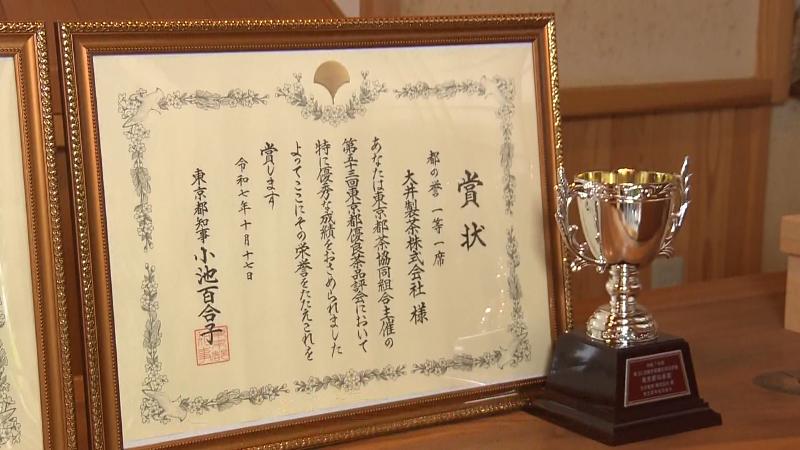 賞状
都の誉 一等一席
大井製茶株式会社 様
あなたは東京都茶協同組合主催の
第五十三回東京都優良茶品評会において
特に優秀な成績をおさめられました
よってここにその栄誉をたたえこれを
賞します
令和七年十月十七日
東京都知事 小池百合子